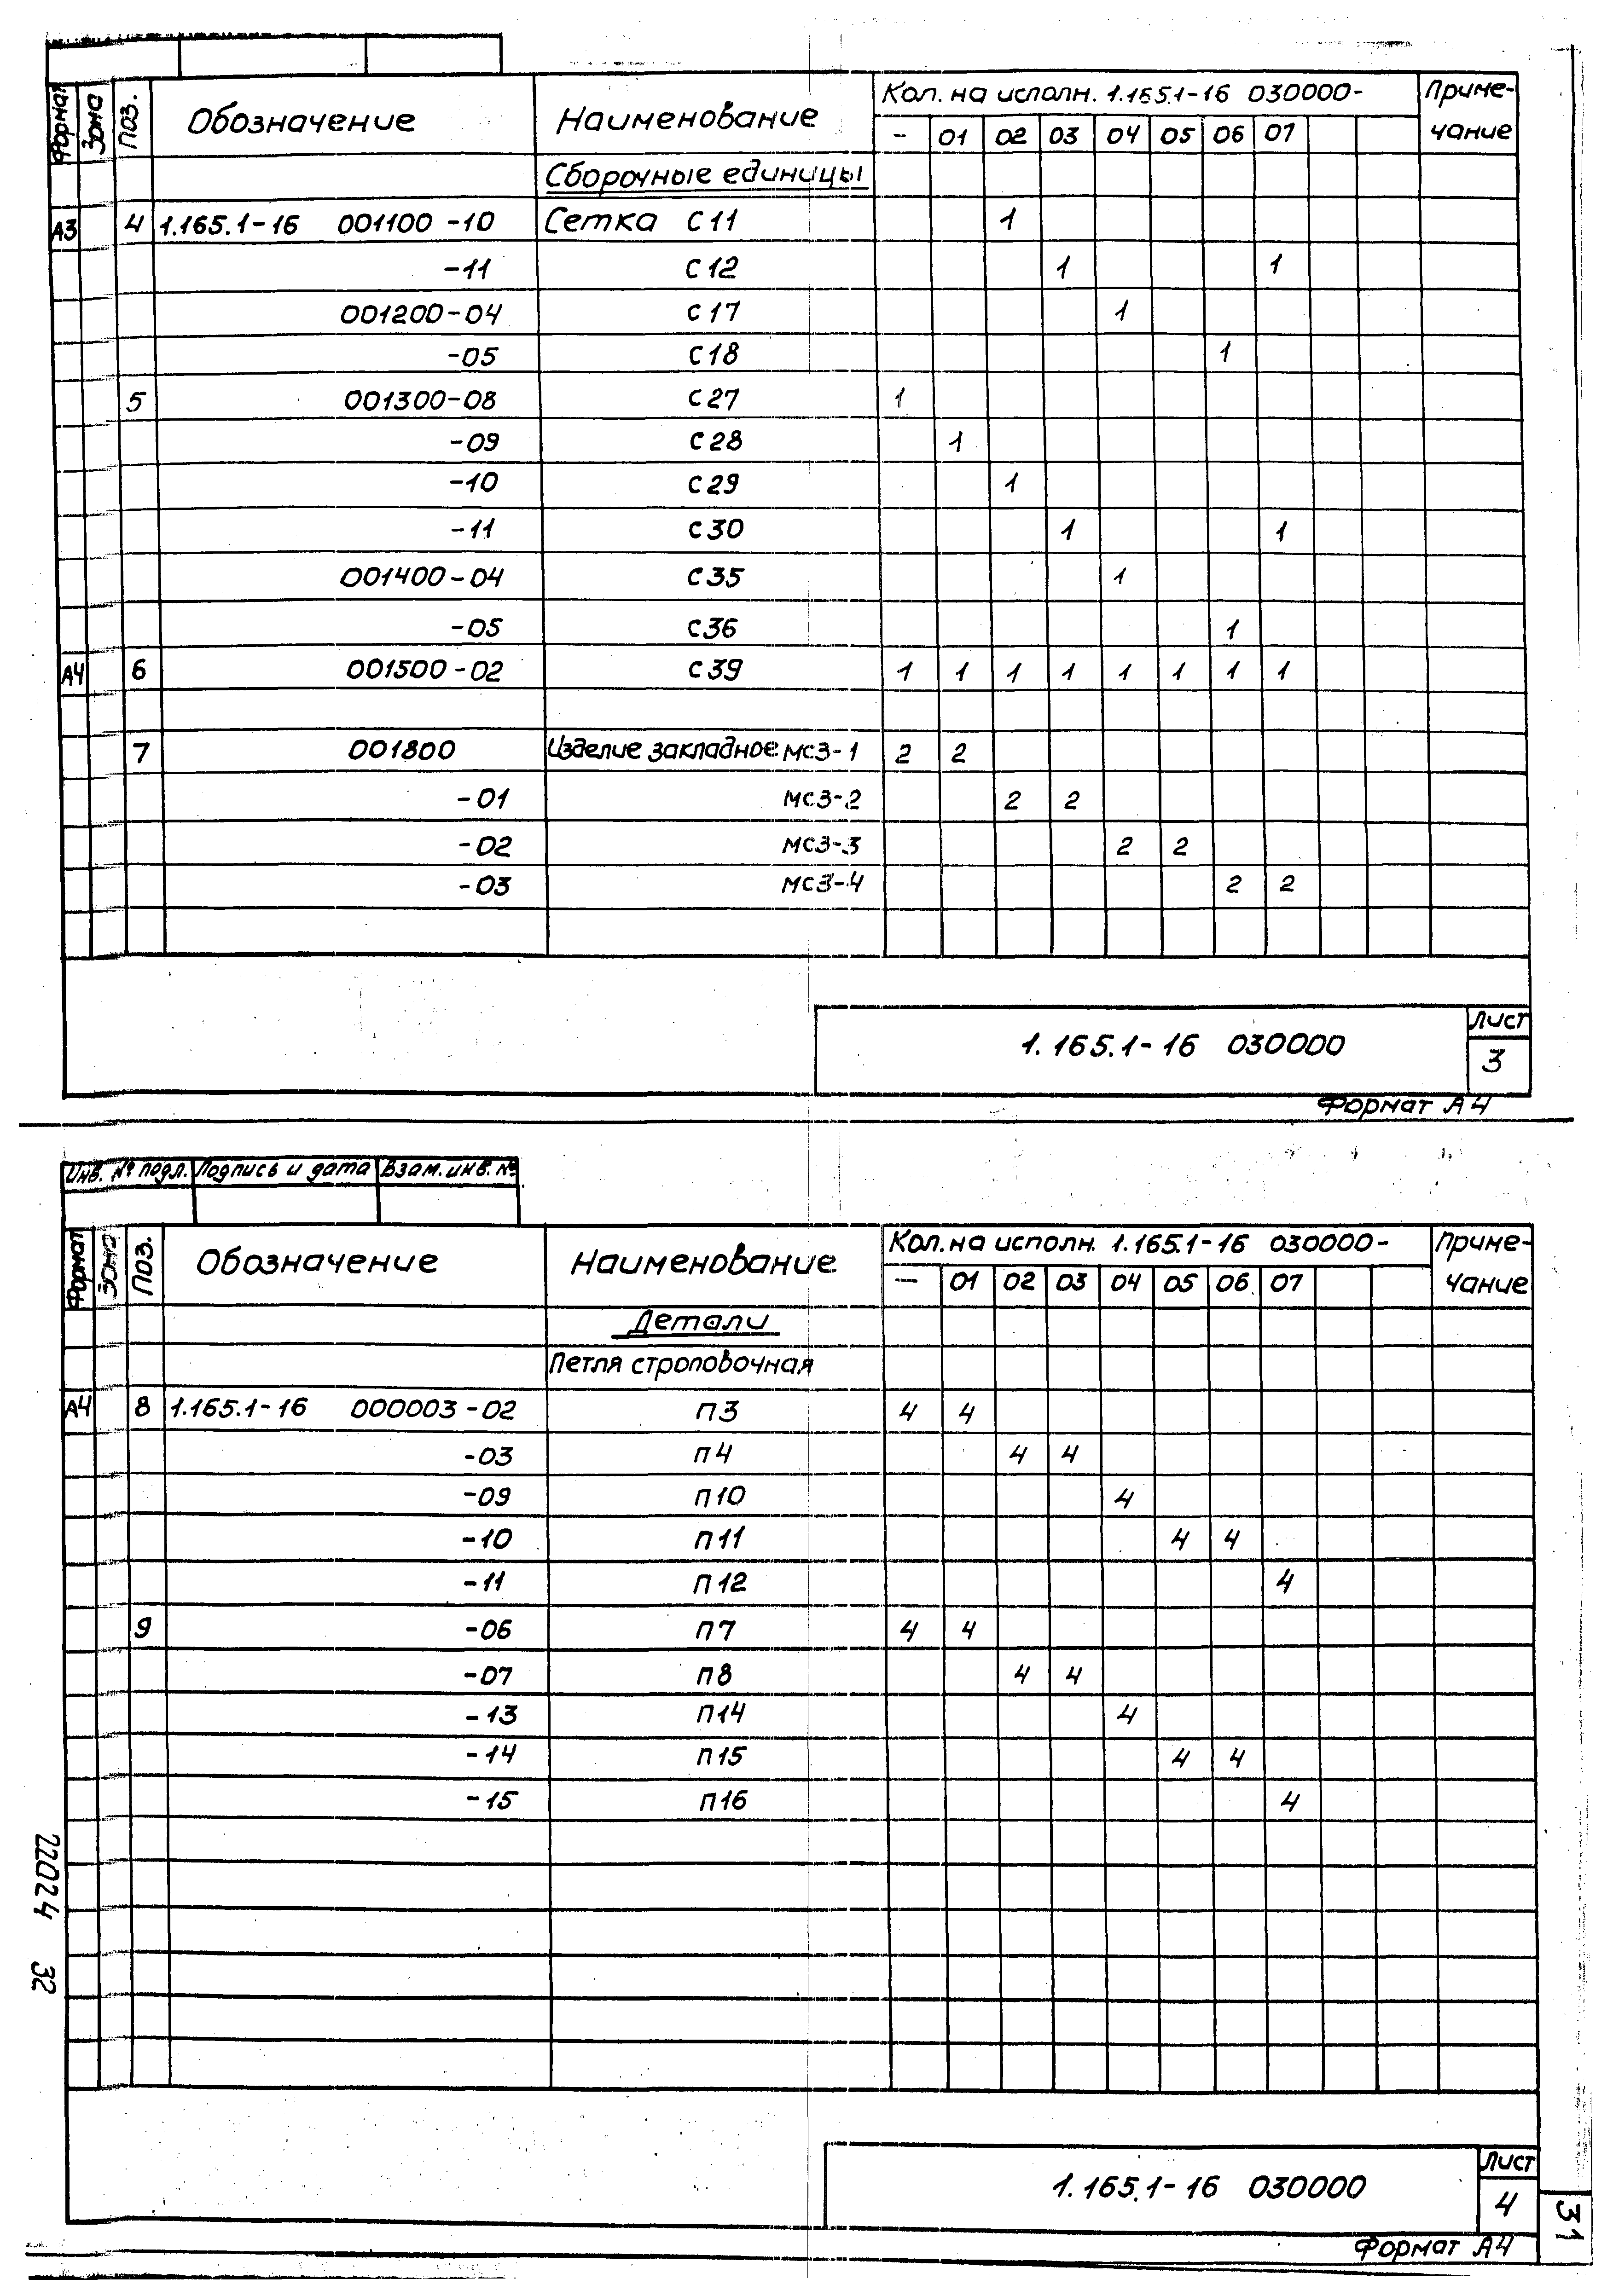 Формат Зона Поз. Обозначение Наименование Кол. на исполн. 1.165.1-16 030000- Приме-
- 01 02 03 04 05 06 07 чание
Сборочные единицы
А3 4 1.165.1-16 001100 -10 Сетка С11 1
-11 С12 1 1
001200-04 С17 1
-05 С18 1
5 001300-08 С27 1
-09 С28 1
-10 С29 1
-11 С30 1 1
001400-04 С35 1
-05 С36 1
А4 6 001500-02 С39 1 1 1 1 1 1 1 1
7 001800 Изделие закладное МС3-1 2 2
-01 МС3-2 2 2
-02 МС3-3 2 2
-03 МС3-4 2 2
1.165.1-16 030000
Лист
3
Формат А4
Инв. № подл. Подпись и дата Взам. инв. №
Формат Зона Поз. Обозначение Наименование Кол. на исполн. 1.165.1-16 030000- Приме-
- 01 02 03 04 05 06 07 чание
Детали
Петля строповочная
А4 8 1.165.1-16 000003-02 П3 4 4
-03 П4 4 4
-09 П10 4
-10 П11 4 4
-11 П12 4
9 -06 П7 4 4
-07 П8 4 4
-13 П14 4
-14 П15 4 4
-15 П16 4
22024 32
1.165.1-16 030000
Лист
4
31
Формат А4